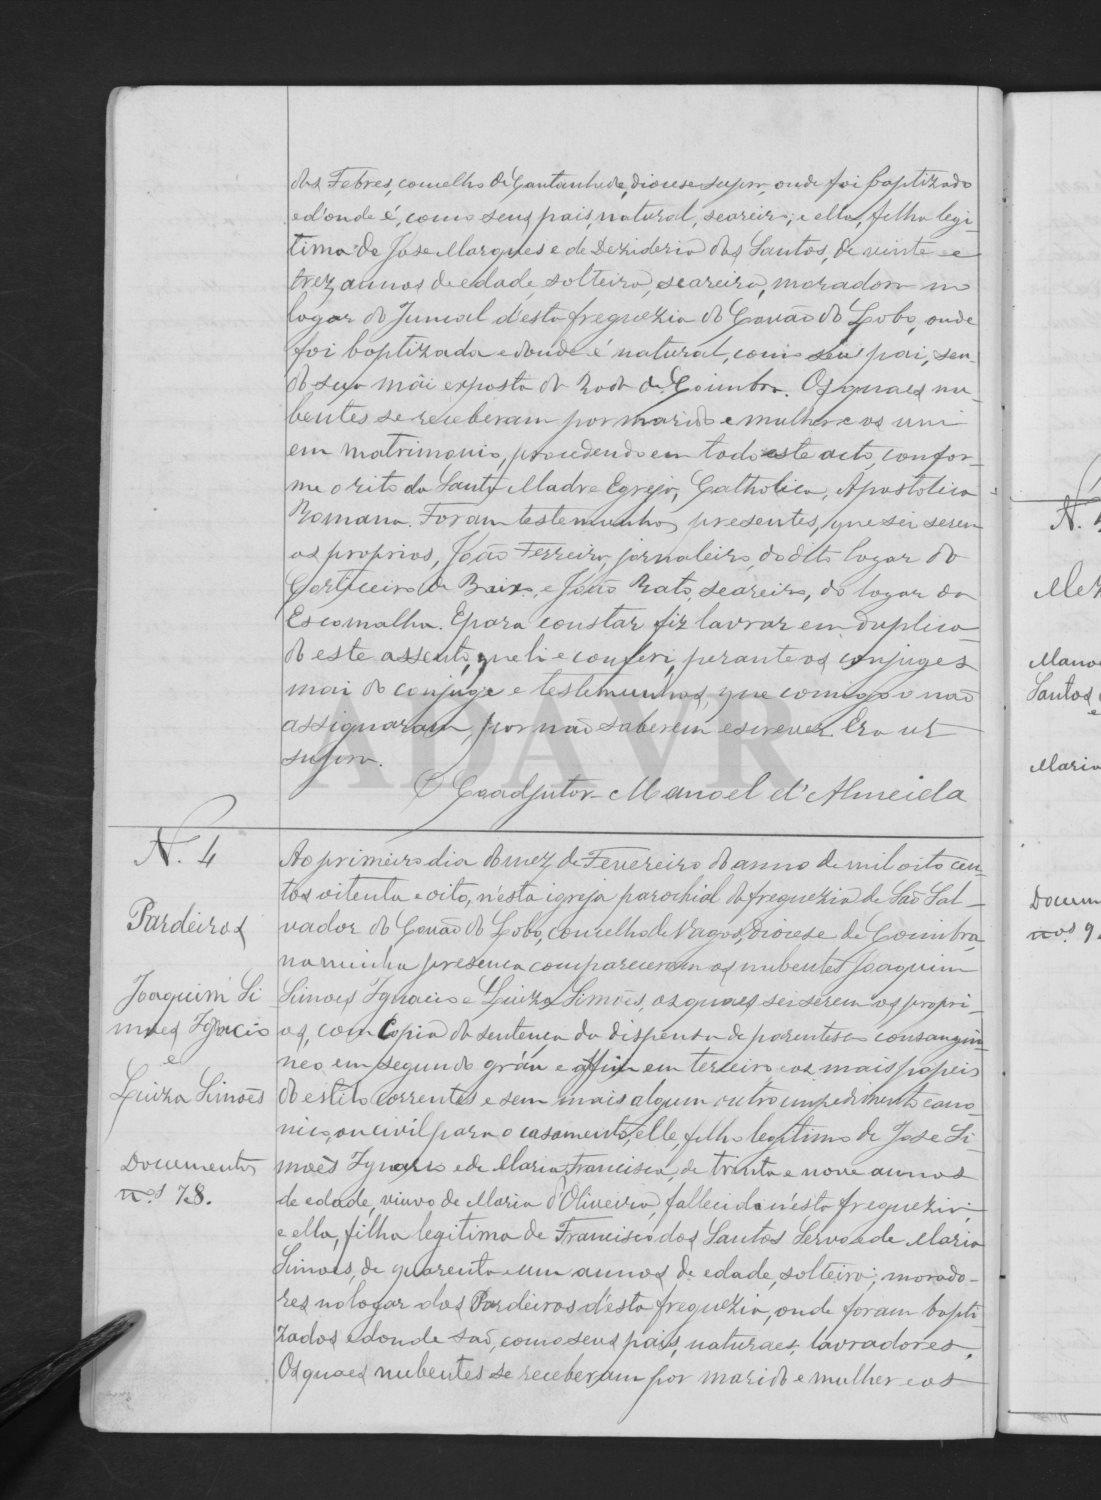 das Febres, concelho de Cantanhede, diocese supra, onde foi baptizado
e d'onde é, como seus pais, natural, seareiro; e ella, filha legi-
tima de José Marques e de Dezideria dos Santos, de vinte e
trez annos de edade, solteira, seareira, moradora no
logar do Juncal d'esta freguezia do Covão do Lobo, onde
foi baptizada e donde é natural, como seu pai, sen-
do sua mãi exposta da Roda de Coimbra. Os quaes nu-
bentes se receberam por marido e mulher e os uni
em matrimonio, procedendo em todo este acto, confor-
me o rito da Santa Madre Egreja, Catholica, Apostolica
Romana. Foram testemunhas presentes, que sei serem
os proprios, João Ferreira, jornaleiro, do dito logar do
Corticeiro de Baixo, e João Rato, seareiro, do logar da
Escomalha. E para constar fiz lavrar em duplica-
do este assento, que li e conferi, perante os conjuges
mai do conjuge e testemunhas, que comigo o não
assignaram, por não saberem escrever. Era ut
supra.
O Coadjutor Manoel d'Almeida
N. 4
Pardeiros
Joaquim Si
mões Ignacio
e
Luiza Simões
Documentos
n.os 7.8.
Ao primeiro dia do mez de Fevereiro do anno de mil oito cen-
tos oitenta e oito, n'esta igreja parochial da freguezia de São Sal-
vador do Covão do Lobo, concelho de Vagos, Diocese de Coimbra,
na minha presença compareceram os nubentes Joaquim
Simões Ignacio e Luiza Simões, os quaes sei serem os propri-
os, com Copia da sentença da dispensa de parentesco consangui-
neo em segundo gráu e affim em terceiro e os mais papeis
do estilo correntes e sem mais algum outro impedimento cano-
nico, ou civil para o casamento; elle, filho legitimo de José Si-
mões Ignacio e de Maria Francisca, de trinta e nove annos
de edade, viuvo de Maria d'Oliveira, fallecida n'esta freguezia;
e ella, filha legitima de Francisco dos Santos Servo e de Maria
Simões, de quarenta e um annos de edade, solteira; morado-
res no logar dos Pardeiros d'esta freguezia, onde foram bapti
zados e donde são, como seus pais, naturaes, lavradores.
Os quaes nubentes se receberam por marido e mulher e os
ADAVR
N.
Mano
Santos
e
Maria
Docum
nos 9.